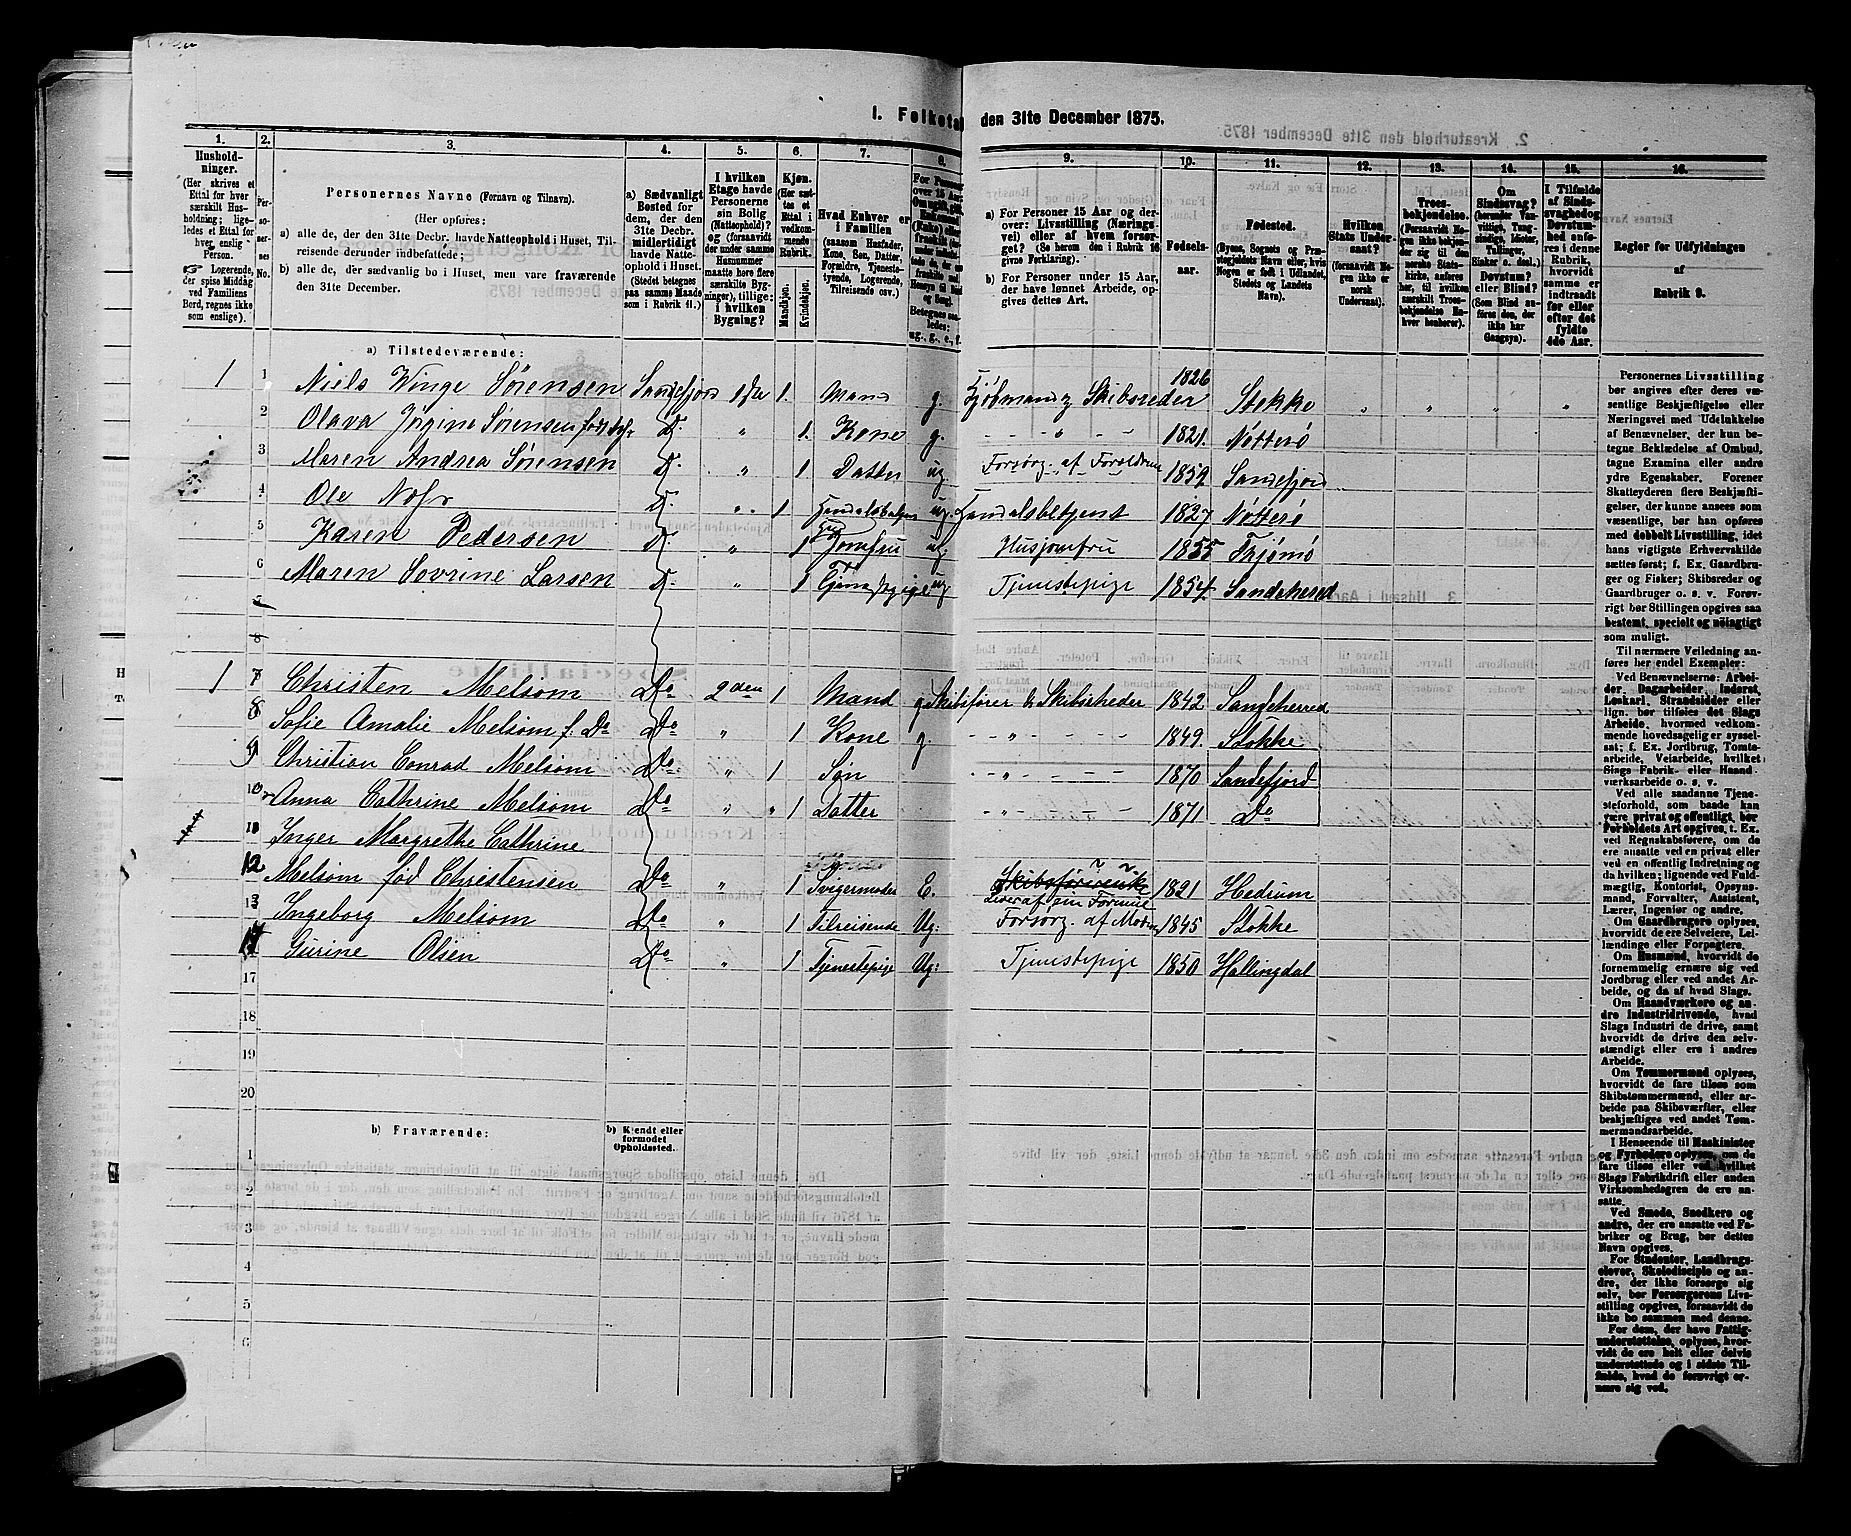 1. Folketal den 31te December 1875.
1. 2. 3. 4. 5. 6. 7. 8. 9. 10. 11. 12. 13. 14. 15. 16.
Husholdninger.
(Her skrives et Ettal for hver særskilt Husholdning; ligeledes et Ettal for hver enslig Person.
Logerende, der spise Middag ved Familiens Bord, regnes ikke som enslige.)
Personernes No.
Personernes Navne (Fornavn og Tilnavn).
(Her opføres:
a) alle de, der den 31te Decbr. havde Natteophold i Huset, Tilreisende derunder indbefattede;
b) alle de, der sædvanlig bo i Huset, men vare fraværende den 31te December.
a) Sædvanligt Bosted for dem, der den 31te Decbr. midlertidigt havde Natteophold i Huset.
(Stedet betegnes paa samme Maade som i Rubrik 11.)
I hvilken Etage havde Personerne sin Bolig (Natteophold)?
og (forsaavidt der under samme Husnummer maatte høre flere særskilte Bygninger), tillige:
i hvilken Bygning?
Kjøn.
(Her sættes et Ettal i vedkommende Rubrik.
Mandkjøn. Kvindekjøn.
Hvad Enhver er i Familien
(saasom Husfader, Kone, Søn, Datter, Forældre, Tjenestetyende, Logerende, Tilreisende osv.)
a) For Personer 15 Aar og derover: Livsstilling (Næringsvei) eller af hvem forsørget? (Se herom den i Rubrik 16 givne Forklaring).
b) For Personer under 15 Aar, der have lønnet Arbeide, opgives dettes Art.
Fødselsaar.
Fødested.
(Byens, Sognets og Præstegjeldets Navn eller, hvis Nogen er født i Udlandet, Stedets og Landets Navn).
Hvilken Stats Undersaat?
(forsaavidt Nogen ikke er norsk Undersaat).
Troesbekjendelse.
(Forsaavidt Nogen ikke bekjender sig til den norske Statskirke, anføres her, til hvilken særskilt Troesbekjendelse Enhver henhører).
Om Sindssvag?
(herunder Vanvittige, Tungsindige, Idioter, Tullinger, Sinker o. desl.).
Døvstum? eller Blind?
(Som Blind anføres den, der ikke har Gangsyn).
I Tilfælde af Sindssvaghed og Døvstumhed anføres i denne Rubrik, hvorvidt samme er indtraadt før eller efter det fyldte 4de Aar.
Regler for Udfyldningen af Rubrik 9.
a) Tilstedeværende:
1 1 Niels Winge Sörensen Sandefjord 1ste 1. Mand g. Kjöbmand & Skibsreder 1826 Stokke
2 Olava Jørgine Sörensen D. " 1. Kone g. - - " - - 1821. Nötterö
3 Maren Andrea Sörensen D. " 1 Datter ug. Forsörg. af Foreldrene 1859 Sandefjord
4 Ole D. " 1 ug. Handelsbetjent 1827 Nötterö
5 Karen Pedersen D. " 1 Jomfru ug. Husjomfru 1855 Tjömö
6 Maren Sovrine Larsen D. " 1 ug. Tjenestepige 1854. Sandeherred
7
8
1 7 Christen Melsom Do 2den 1 Mand g Skibsfører & Skibsrheder 1842 Sandeherred
8 Sofie Amalie Melsom f. Do Do " 1 Kone g - - " - - - 1849. Stokke
9 Christian Conrad Melsom Do " 1 Søn - - " - - - 1870 Sandefjord
10 Anna Cathrine Melsom Do " " 1 Datter - - " - - 1871 Do
11 Inger Margrethe Cathrine
12 Melsom fød Christensen Do " 1 Svigermoder E. Lever af sin Formue 1821 Hedrum
13 Ingeborg Melsom Do " 1 Tilreisende Ug: Forsörg. af Moderen 1845 Stokke
14 Gurine Olsen Do " 1 Tjenestepige Ug: Tjenestepige 1850 Hallingdal
17
18
19
20
b) Fraværende:
b) Kjendt eller formodet Opholdssted.
1
2
3
4
5
6
Personernes Livsstilling
bør angives efter deres væ-
sentlige Beskjæftigelse eller
Næringsvei med Udelukkelse
af Benævnelser, der kun be-
tegne Beklædelse af Ombud,
tagne Examina eller andre
ydre Egenskaber. Forener
Skatteyderen flere Beskjæfti-
gelser, der kunne ansees som
væsentlige, bør han opføres
med dobbelt Livsstilling, idet
hans vigtigste Erhvervskilde
sættes først; f. Ex. Gaardbru-
ger og Fisker; Skibsreder og
Gaardbruger o. s. v. Forøv-
rigt bør Stillingen opgives saa
bestemt, specielt og nøiagtigt
som muligt.
Til nærmere Veiledning an-
føres her endel Exempler:
Ved Benævnelserne: Arbei-
der, Dagarbeider, Inderst,
Løskarl, Strandsidder eller
lign. bør tilføies det Slags
Arbeide, hvormed vedkom-
mende hovedsagelig er syssel-
sat; f. Ex. Jordbrug, Tomte-
arbeide, Veiarbeide, hvilket
Slags Fabrik- eller Haand-
værksarbeide o. s. v.
Ved alle saadanne Tjene-
steforhold, som baade kan
være privat og offentligt, bør
Forholdets Art opgives, t. Ex.
ved Regnskabsførere, om de
ere ansatte ved en privat eller
ved en offentlig Indretning og
da hvilken; lignende ved Fuld-
mægtig, Kontorist, Opsyns-
mand, Forvalter, Assistent,
Lærer, Ingeniør og andre.
Om Gaardbrugere oplyses,
hvorvidt de ere Selveiere, Lei-
lændinge eller Forpagtere.
Om Husmænd, hvorvidt de
fornemmelig ernære sig ved
Jordbrug eller ved andet Ar-
beide, og da af hvad Slags.
Om Haandværkere og an-
dre Industridrivende, hvad
Slags Industri de drive, samt
hvorvidt de drive den selv-
stændigt eller ere i andres
Arbeide.
Om Tømmermænd oplyses,
hvorvidt de fare tilsøs som
Skibstømmermænd, eller ar-
beide paa Skibsværfter, eller
beskjæftiges ved andet Tøm-
mermandsarbeide.
I Henseende til Maskinister
og Fyrbødere oplyses, om de
fare tilsøs eller ved hvilket
Slags Fabrikdrift eller anden
Virksomhedsgren de ere an-
satte.
Ved Smede, Snedkere og
andre, der ere ansatte ved Fa-
briker og Brug, bør dettes
Navn opgives.
For Studenter, Landbrugs-
elever, Skoledisciple og an-
dre, der ikke forsørge sig
selv, bør Forsørgerens Livs-
stilling opgives, forsaavidt de
ikke bo sammen med denne.
For dem, der have Fattig-
understøttelse, oplyses, hvor-
vidt de ere helt eller delvis
understøttede og i sidste Til-
fælde, hvad de forøvrigt er-
nære sig ved.